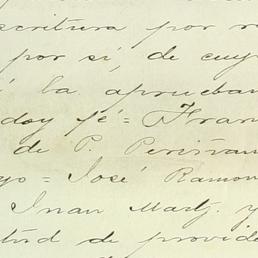 escritura por
por sí, de cuy
la aprueban
doy fé = Fran
de P. Periñan
yo = José Ramon
Juan Martz. y
tud de provide